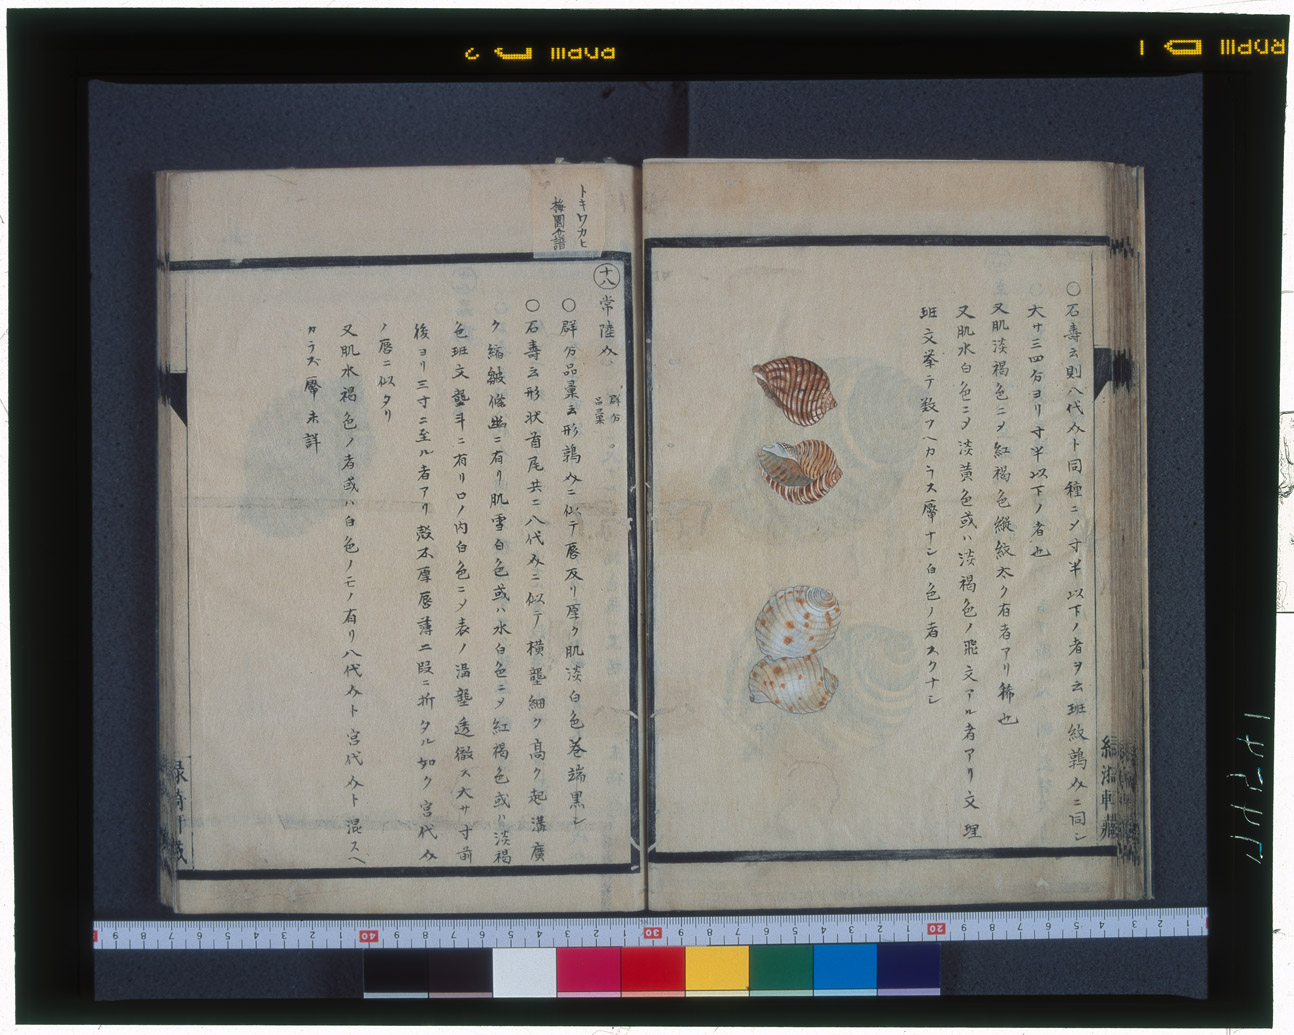 ○石壽云則八代介ト同種ニメ寸半以下ノ者ヲ云班紋鶉介ニ同シ
大サ三四分ヨリ寸半以下ノ者也
又肌淡褐色ニメ紅褐色縦紋太ク有者アリ稀也
又肌水白色ニメ淡黄色或ハ淡褐色ノ飛文アル者アリ文理
班文挙テ数フヘカラス厴ナシ白色ノ者スクナシ
緑漪軒蔵
トキワカヒ
梅園介譜
十八 常陸介 群分品彙
○群分品彙云形鶉介ニ似テ唇反リ厚ク肌淡白色巻端黒シ
○石壽云形状首尾共ニ八代介ニ似テ横壟細ク高ク起溝廣
ク縮皺條幽ニ有リ肌雪白色或ハ水白色ニメ紅褐色或ハ淡褐
色班文壟斗ニ有リ口ノ内白色ニメ表ノ溝壟透徹ス大サ寸前
後ヨリ三寸ニ至ル者アリ殻不厚唇薄ニ段ニ折タル如ク宮代介
ノ唇ニ似タリ
又肌水褐色ノ者或ハ白色ノモノ有リ八代介ト宮代介ト混スヘ
カラズ厴未詳
緑漪軒蔵
RDPIII
2
RDPIII
1